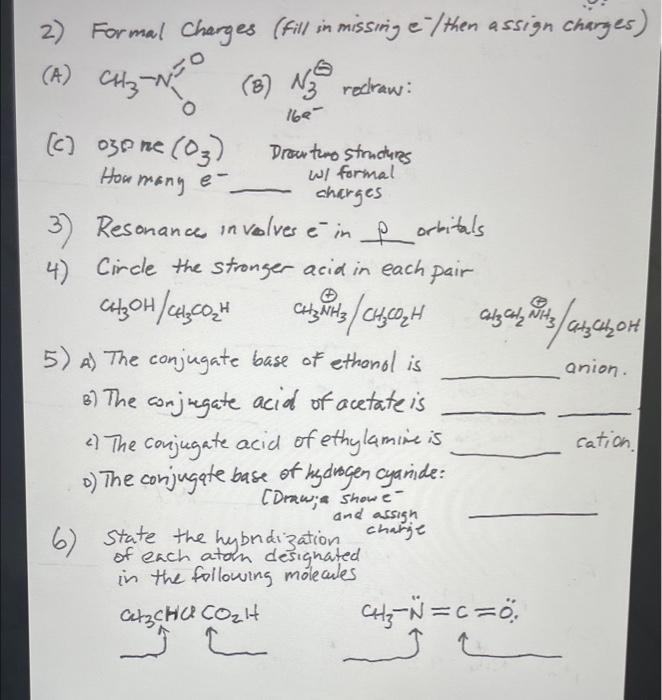 2) Formal Charges (fill in missing e⁻/then assign charges)
(A) CH₃-N=O O (B) N₃⊖ redraw:
16e⁻
(C) ozone (O₃) Draw two structures
How many e⁻ ____ w/ formal
charges
3) Resonance involves e⁻ in p orbitals
4) Circle the stronger acid in each pair
CH₃OH/CH₃CO₂H CH₃N⊕H₃/CH₃CO₂H CH₃CH₂N⊕H₃/CH₃CH₂OH
5) A) The conjugate base of ethanol is ______ anion.
B) The conjugate acid of acetate is ______ ______
c) The conjugate acid of ethylamine is ______ cation.
D) The conjugate base of hydrogen cyanide: ______
[Draw; show e⁻
and assign
charge
6) State the hybridization
of each atom designated
in the following molecules
CH₃CHClCO₂H CH₃-N̈=C=Ö: